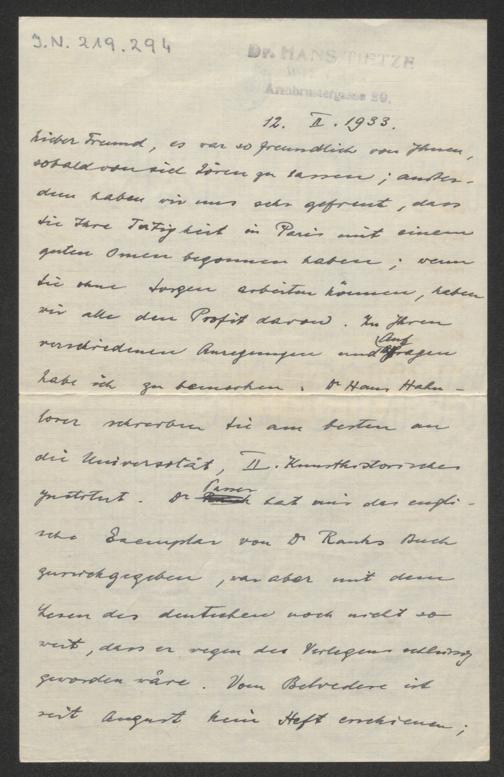 J.N. 219.294
Dr. HANS TIETZE
Armbrustergasse 20.
12. II. 1933.
Lieber Freund, es war so freundlich von Ihnen,
sobald von sich hören zu lassen; außer-
dem haben wir uns sehr gefreut, dass
Sie Ihre Tätigkeit in Paris mit einem
guten Omen begonnen haben; wenn
Sie ohne Sorgen arbeiten können, haben
wir alle den Profit davon. Zu Ihren
verschiedenen Anregungen und Anfragen
habe ich zu bemerken. Dr Hans Hahn-
loser schreiben Sie am besten an
die Universität, II. Kunsthistorisches
Institut. Dr Passer hat mir das engli-
sche Exemplar von Dr Ranks Buch
zurückgegeben, war aber mit dem
Lesen des deutschen noch nicht so
weit, dass er wegen des Verlegens schlüssig
geworden wäre. Vom Belvedere ist
seit August kein Heft erschienen;